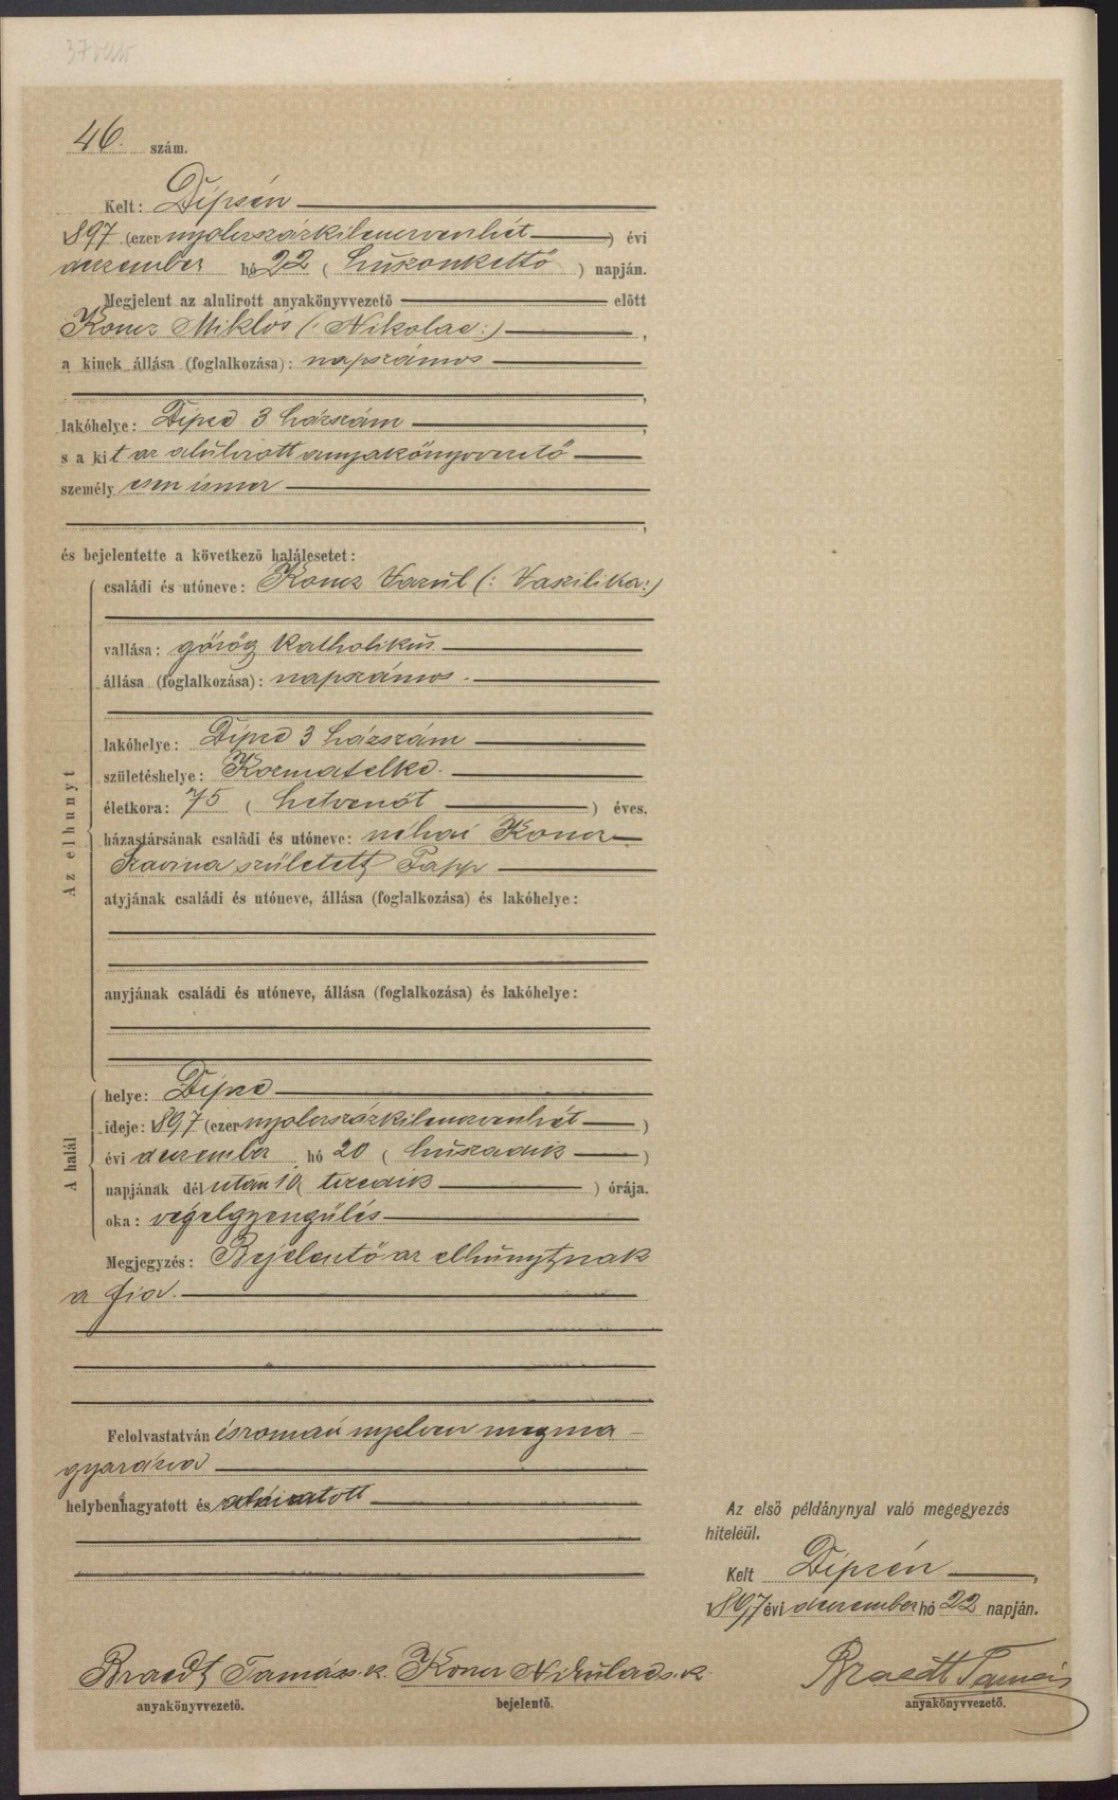 46. szám.
Kelt: Dipsén
1897 (ezernyolczszázkilenczvenhét) évi
deczember hó 22 (huszonkettő) napján.
Megjelent az alulirott anyakönyvvezető előtt
Koncz Miklós (: Nikolae :),
a kinek állása (foglalkozása): napszámos
lakóhelye: Dipse 3 házszám
s a kit az alulirott anyakönyvvezető
személyesen ismer
és bejelentette a következő halálesetet:
Az elhunyt
családi és utóneve: Koncz Vazul (: Vaszilika :)
vallása: görög katholikus
állása (foglalkozása): napszámos.
lakóhelye: Dipse 3 házszám
születéshelye: Kozmatelke.
életkora: 75 (hetvenöt) éves.
házastársának családi és utóneve: néhai Koncz
született Papp
atyjának családi és utóneve, állása (foglalkozása) és lakóhelye:
anyjának családi és utóneve, állása (foglalkozása) és lakóhelye:
A halál
helye: Dipse
ideje: 1897 (ezernyolczszázkilenczvenhét)
évi deczember hó 20 (huszadik)
napjának délután 10 (tizedik) órája.
oka: végelgyengülés
Megjegyzés: Bejelentő az elhunytnak
a fia.
Felolvastatván és román nyelven megma-
gyarázva
helybenhagyatott és aláiratott
Az első példánynyal való megegyezés
hiteléül.
Kelt Dipsén,
1897 évi deczember hó 22 napján.
Braedt Tamás s. k. Koncz Nikulae s. k. Braedt Tamás
anyakönyvvezető. bejelentő. anyakönyvvezető.